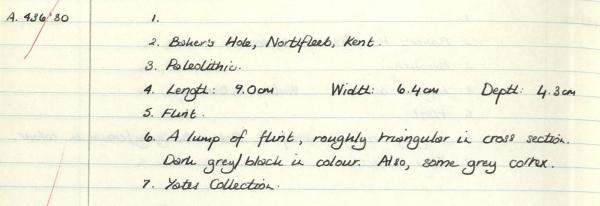 A. 436/80 1.
2. Baker's Hole, Northfleet, Kent.
3. Paleolithic.
4. Length: 9.0cm Width: 6.4cm Depth: 4.3cm
5. Flint.
6. A lump of flint, roughly triangular in cross section.
Dark grey/black in colour. Also, some grey cortex.
7. Yates Collection.